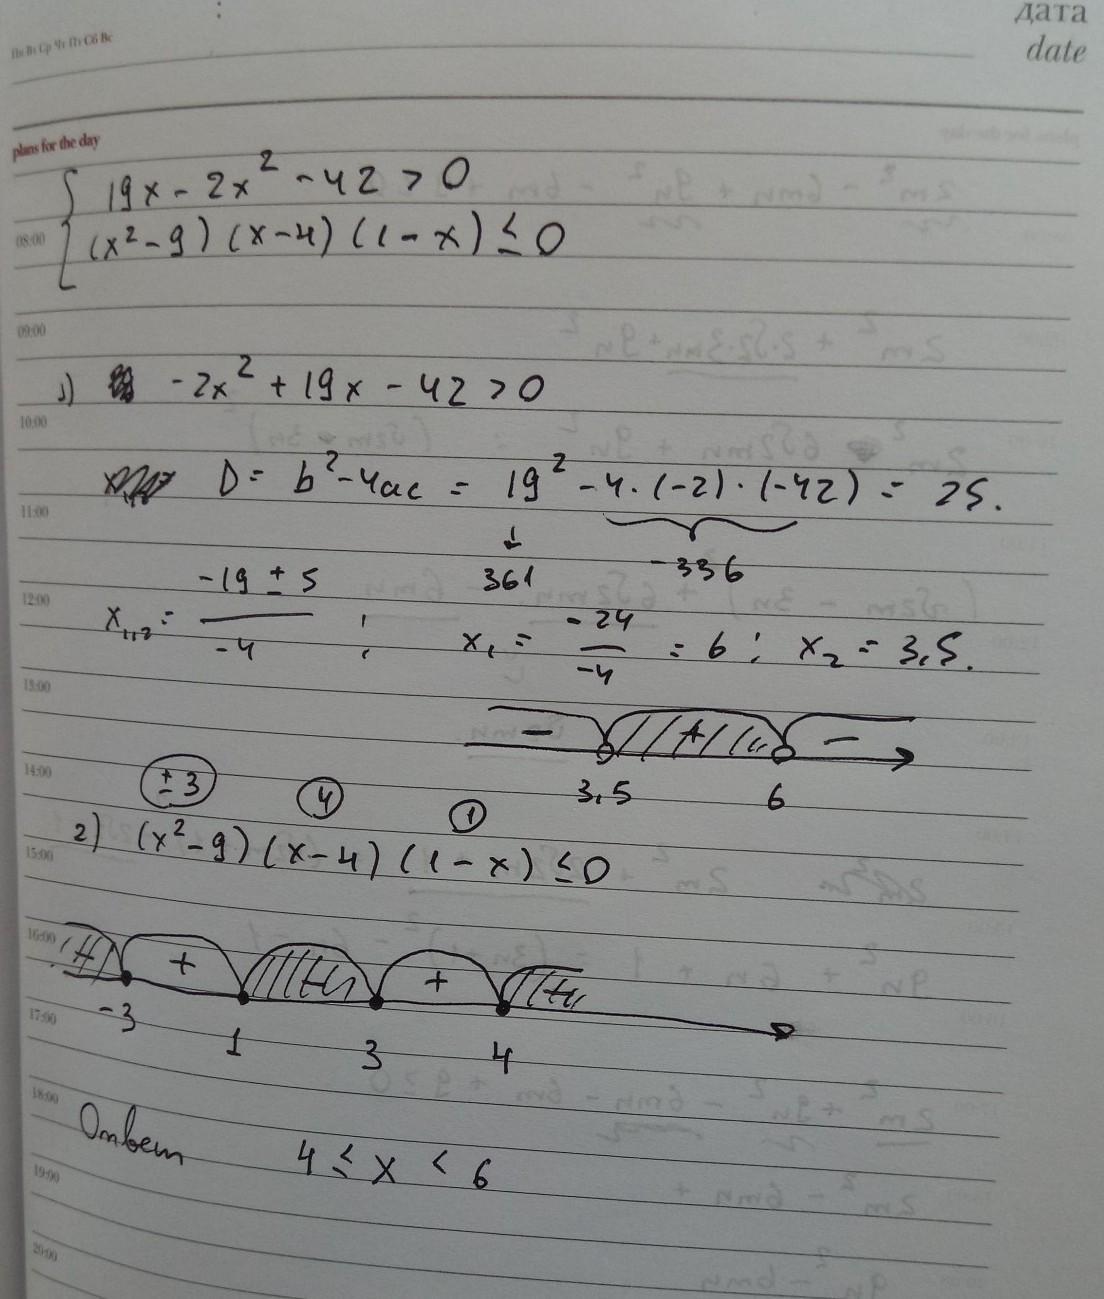 дата
Пн Вт Ср Чт Пт Сб Вс
date
plans for the day
19x - 2x² - 42 > 0
08:00
(x² - 9)(x - 4)(1 - x) ≤ 0
09:00
1) -2x² + 19x - 42 > 0
10:00
D = b² - 4ac = 19² - 4·(-2)·(-42) = 25.
11:00
361 -336
12:00
x₁,₂ = (-19 ± 5)/(-4) ; x₁ = (-24)/(-4) = 6 ; x₂ = 3,5.
13:00
- + -
3,5 6
14:00
±3 4 1
2) (x² - 9)(x - 4)(1 - x) ≤ 0
15:00
16:00
- + - + -
-3 1 3 4
17:00
18:00
Ответ 4 ≤ x < 6
19:00
20:00